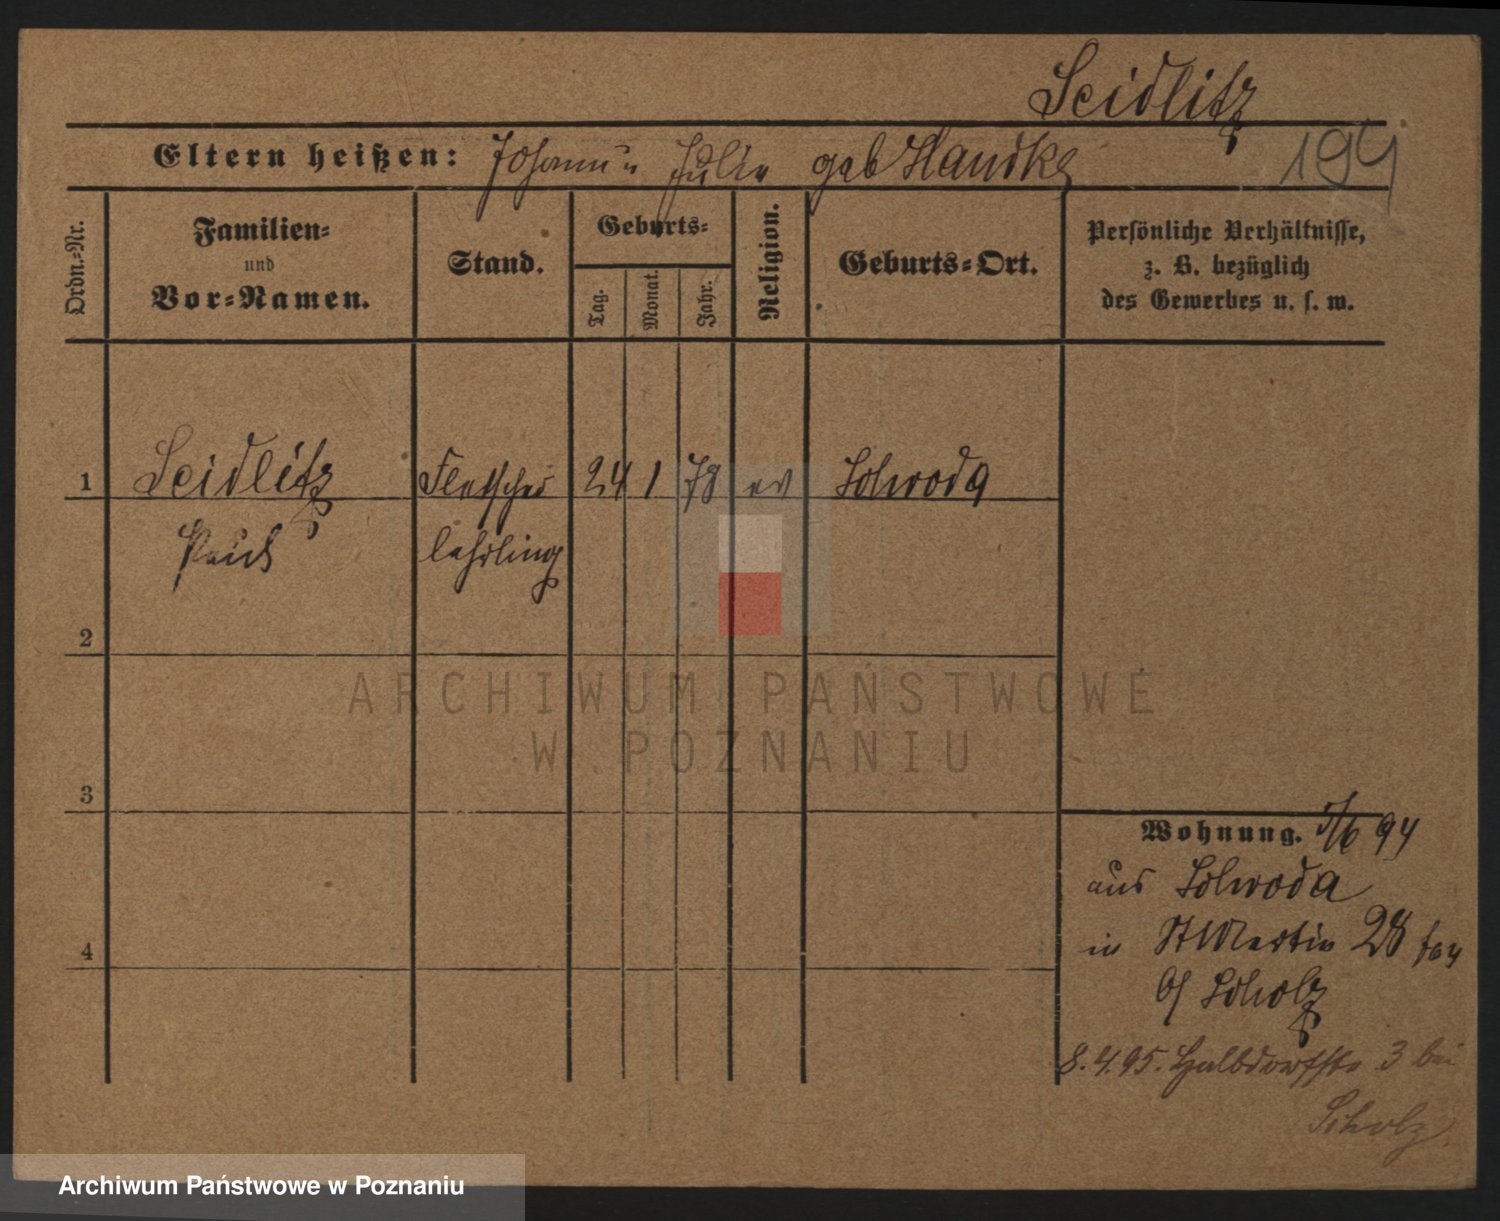 Seidlitz
Eltern heißen: Johann u Julie geb Handke
194
Ordn.-Nr.
Familien-
und
Vor-Namen.
Stand.
Geburts-
Tag.
Monat.
Jahr.
Religion.
Geburts-Ort.
Persönliche Verhältnisse,
z. B. bezüglich
des Gewerbes u. s. w.
1 Seidlitz Fleischer 24 1 78 ev Schroda
Paul lehrling
2
3
4
Wohnung. 5/6 94
aus Schroda
in St Martin 28
b/ Scholz
8.4.95. Halbdorfstr 3 bei
Scholz.
ARCHIWUM PAŃSTWOWE
W POZNANIU
Archiwum Państwowe w Poznaniu